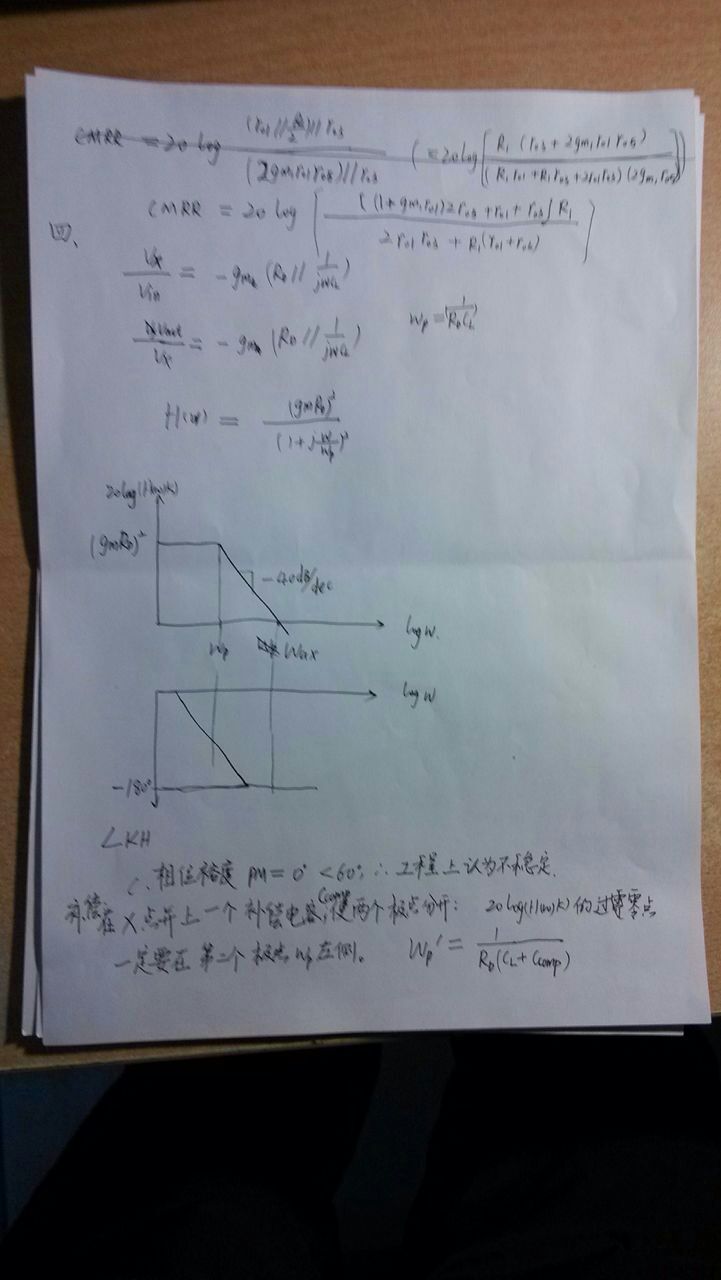 CMRR = 20 log (r01 // R1/2) // r03 / (2gm1r01r05) // r03 ( = 20log [ R1 (r03 + 2gm1r01r05) / (R1r01 + R1r03 + 2r01r03) (2gm1r05) ] )
CMRR = 20 log [ [(1+gm1r01)2r05 + r01 + r03] R1 / 2r01r03 + R1(r01+r03) ]
四、
Vx / Vin = - gm (RD // 1/jwCL)
Vout / Vx = - gm (RD // 1/jwCL) Wp = 1/RDCL
H(w) = (gmRD)² / (1+j w/wp)²
20log(H(w)K)
(gmRD)²
-40dB/dec
log w.
Wp Wax
log w
-180°
∠KH
∴ 相位裕度 PM = 0° < 60°, ∴ 工程上认为不稳定.
补偿在 X 点并上一个补偿电容Ccomp, 使两个极点分开: 20log(H(w)K) 的过零点
一定要在第二个极点 Wp 左侧。 Wp' = 1 / RD(CL + Ccomp)